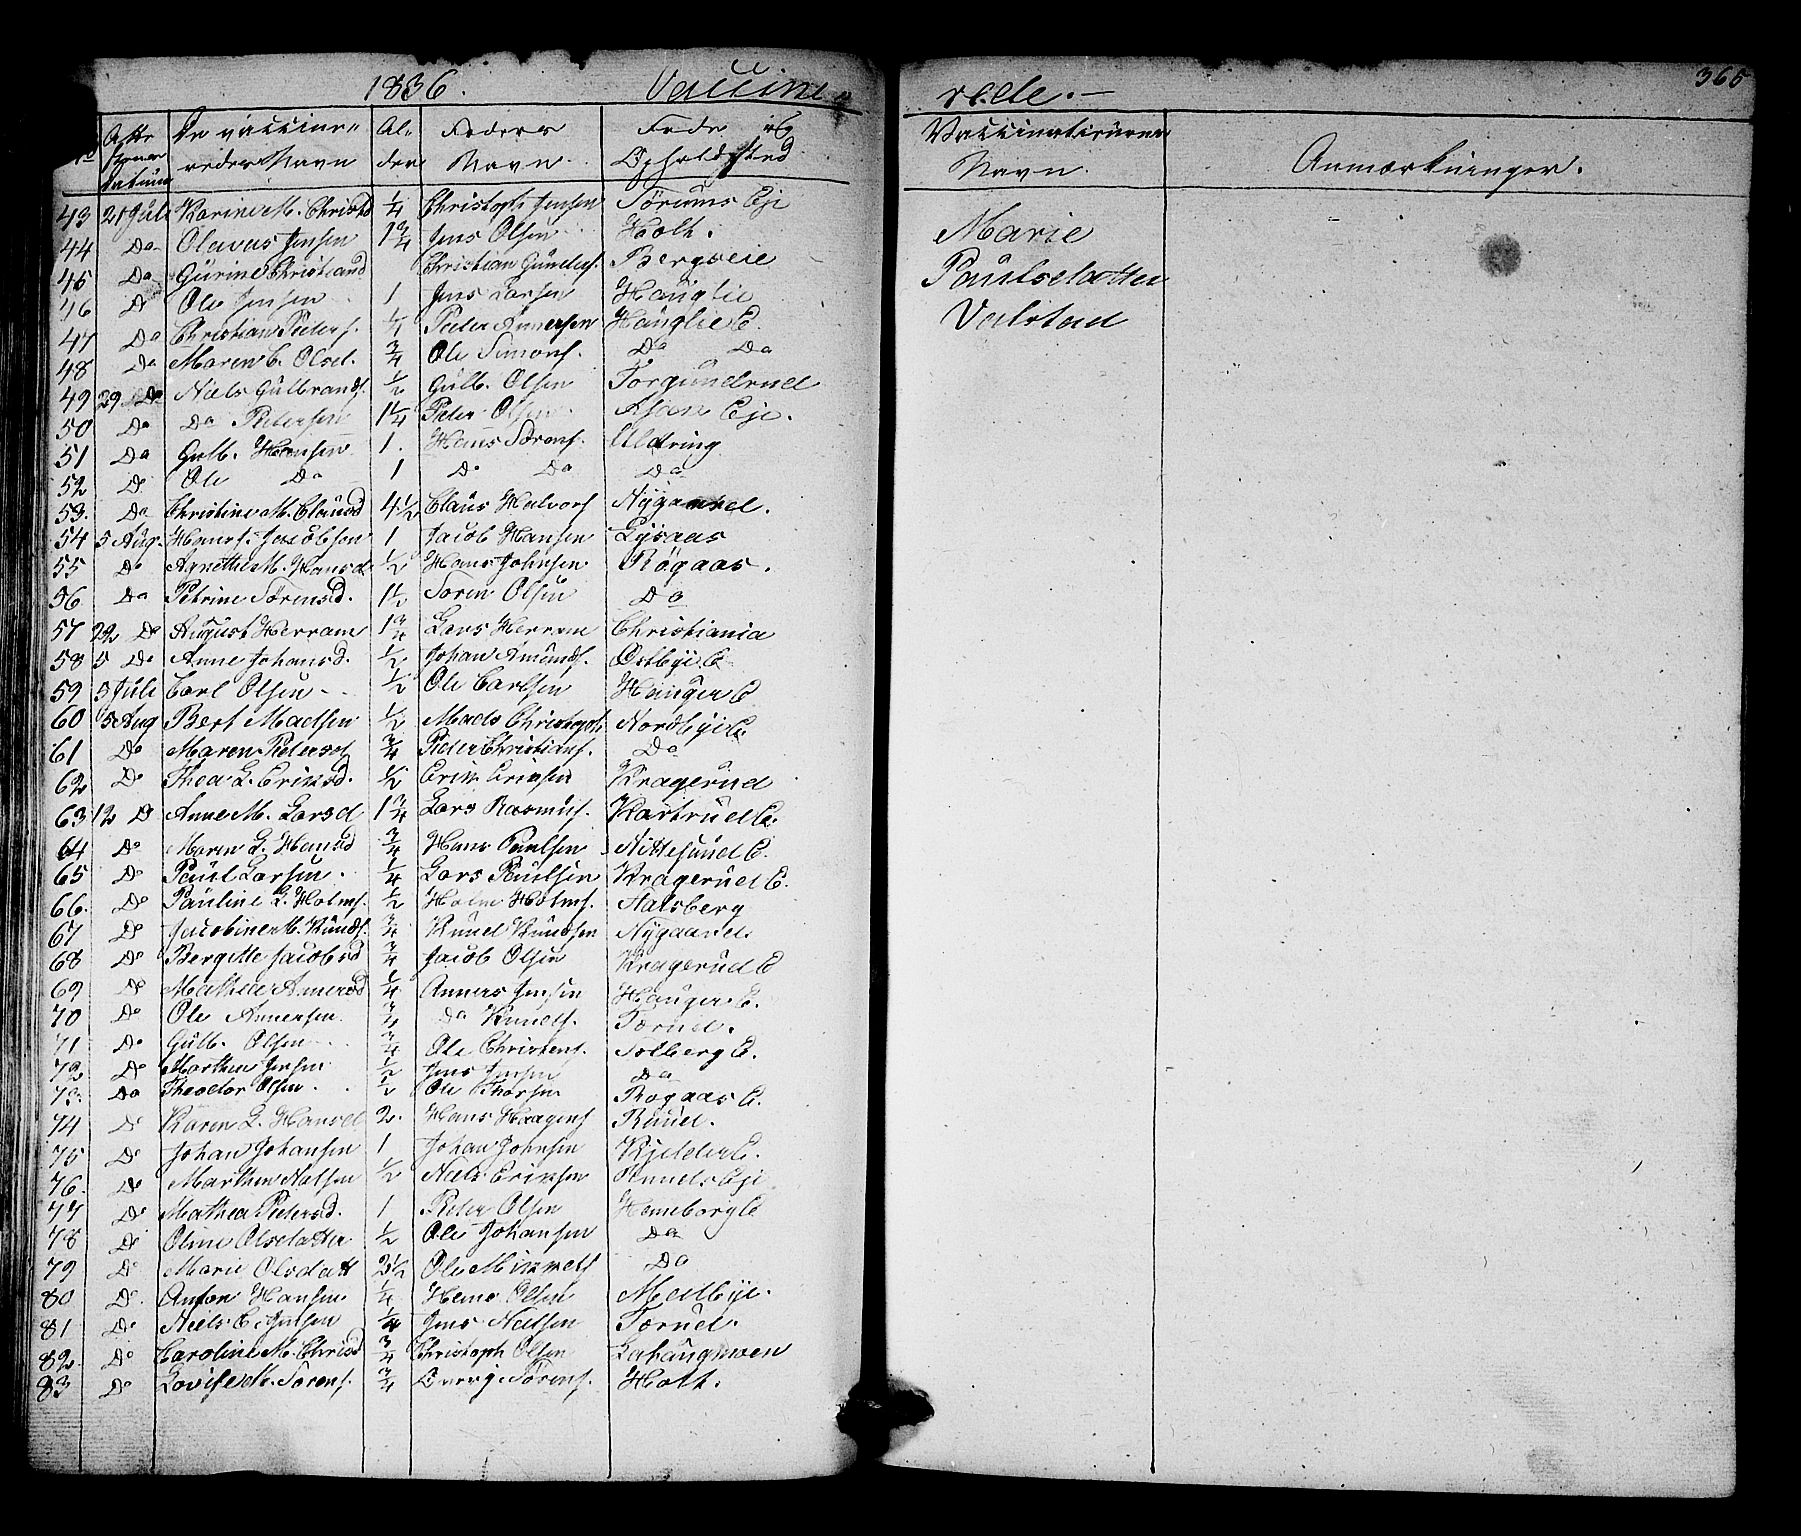 1836. Vaccine-
rede.- 365
No Atte sternes Datum De vaccine- redes Navn Al- der Foders Navn. Føde og Opholdssted
Vaccinatirernes Navn. Anmærkninger.
43 21 Juli Karine M. Christd 1/4 Christoph Jensen Tørums Eje
44 Do Olavus Jensen 1 3/4 Jens Olsen Holt.
45 Do Gurine Christiansd Christian Gunders. Bergseie
46 Do Ole Jensen 1 Jens Larsen Hauglie
47 Do Christian Peters. 1/4 Peder Annersen Hauglie E.
48 Do Maren C. Olsd. 3/4 Ole Simons. Do Do
49 29 Do Niels Gulbrands. 1/2 Gulb. Olsen Torgundrud
50 Do Do Petersen 1 1/4 Peter Olsen Asan Eje.
51 Do Gulb. Hansen 1. Hans Sørens. Uldring
52 Do Ole Do 1 Do Do Do
53. Do Christine M. Clausd 4 1/2 Claus Halvors Nygaard.
54 5 Aug. Hans. Jacobsen 1 Jacob Hansen Lysaas
55 Do Agnethe M. Hansd. 1/2 Hans Johnsen Rögaas.
56 Do Petrine Sørensd. 1 1/2 Sören Olsen Do
57 22 Do August Herram 1 3/4 Lars Herram Christiania
58 5 Do Anne Johansd. 1/2 Johan Amunds. Østbye E
59 5 Juli Carl Olsen 1/2 Ole Carlsen Hauger E
60 5 Aug Bert Madsen 1/2 Mads Christoph. Nordbye E.
61 Do Maren Peters. 3/4 Peder Christians. Do
62 Do Thea L. Eriksd. 1/2 Erik Eriksen Kragerud
63 12 Do Anne M. Larsd 1 3/4 Lars Rasmus. Kartrud E.
64 Do Maren L. Hansd 3/4 Hans Paulsen Nittesund E.
65 Do Paul Larsen. 1/4 Lars Paulsen Kragerud E.
66. Do Pauline L. Holms. 1/2 Holm Holms. Aalsberg
67 Do Jacobine M. Knuds. 3/4 Knud Knudsen Nygaard.
68 Do Bergitte Jacobsd 3/4 Jacob Olsen Kragerud E
69 Do Mathea Annersd 1/4 Anners Jensen Hauger E.
70 Do Ole Annersen 3/4 Do Knuds. Tørud.
71 Do Gulb. Olsen 3/4 Ole Christens. Solberg E.
72 Do Marthin Jensen 1/2 Jens Jensen Do
73. Do Theodor Olsen. 1/2 Ole Thorsen Rogaas E.
74 Do Karen L. Hansd 2. Hans Haagens Ruud.
75 Do Johan Johansen 1 Johan Johnsen Kjelder E.
76. Do Marthin Nielsen 1/2 Niels Eriksen Ruuds Eje
77 Do Mathea Petersd. 1 Peter Olsen Heneborg E
78 Do Oline Olsdatter 1/2 Ole Johansen Do
79 Do Marie Olsdatt 2 1/2 Ole Do
80 Do. Anton Hansen 1/4 Hans Olsen Medbye.
81 Do Niels C. Jensen 1/4 Jens Nielsen Tørud.
82. Do Caroline M. Chrisd 3/4 Christoph Olsen Lahaugmoen
83 Do Lovise M. Sørens. 3/4 Sørens. Holt.
Marie
Paulsdatter
Valstad